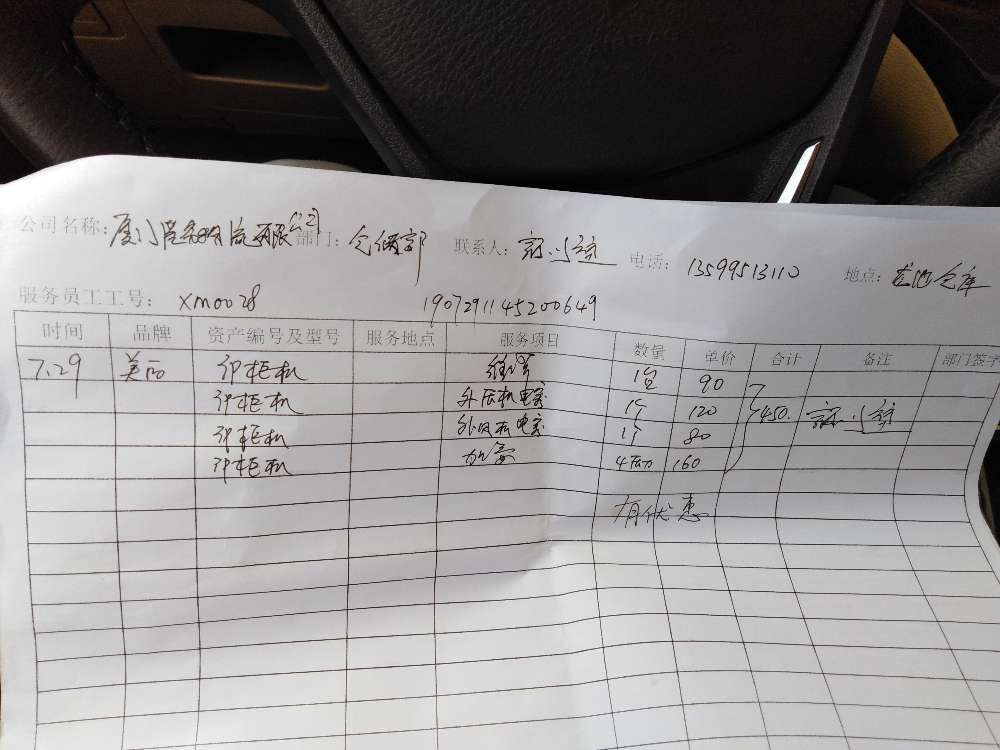 公司名称: 厦门 物流有限公司 部门: 仓储部 联系人: 电话: 13599513110 地点: 仓库
服务员工工号: xm0028 1907291145200649
时间 品牌 资产编号及型号 服务地点 服务项目 数量 单价 合计 备注 部门签字
7.29 美的 柜机 维修 1台 90
柜机 外压机电容 1个 120 450.
柜机 外风机电容 1个 80
柜机 加氟 4压力 160
有优惠